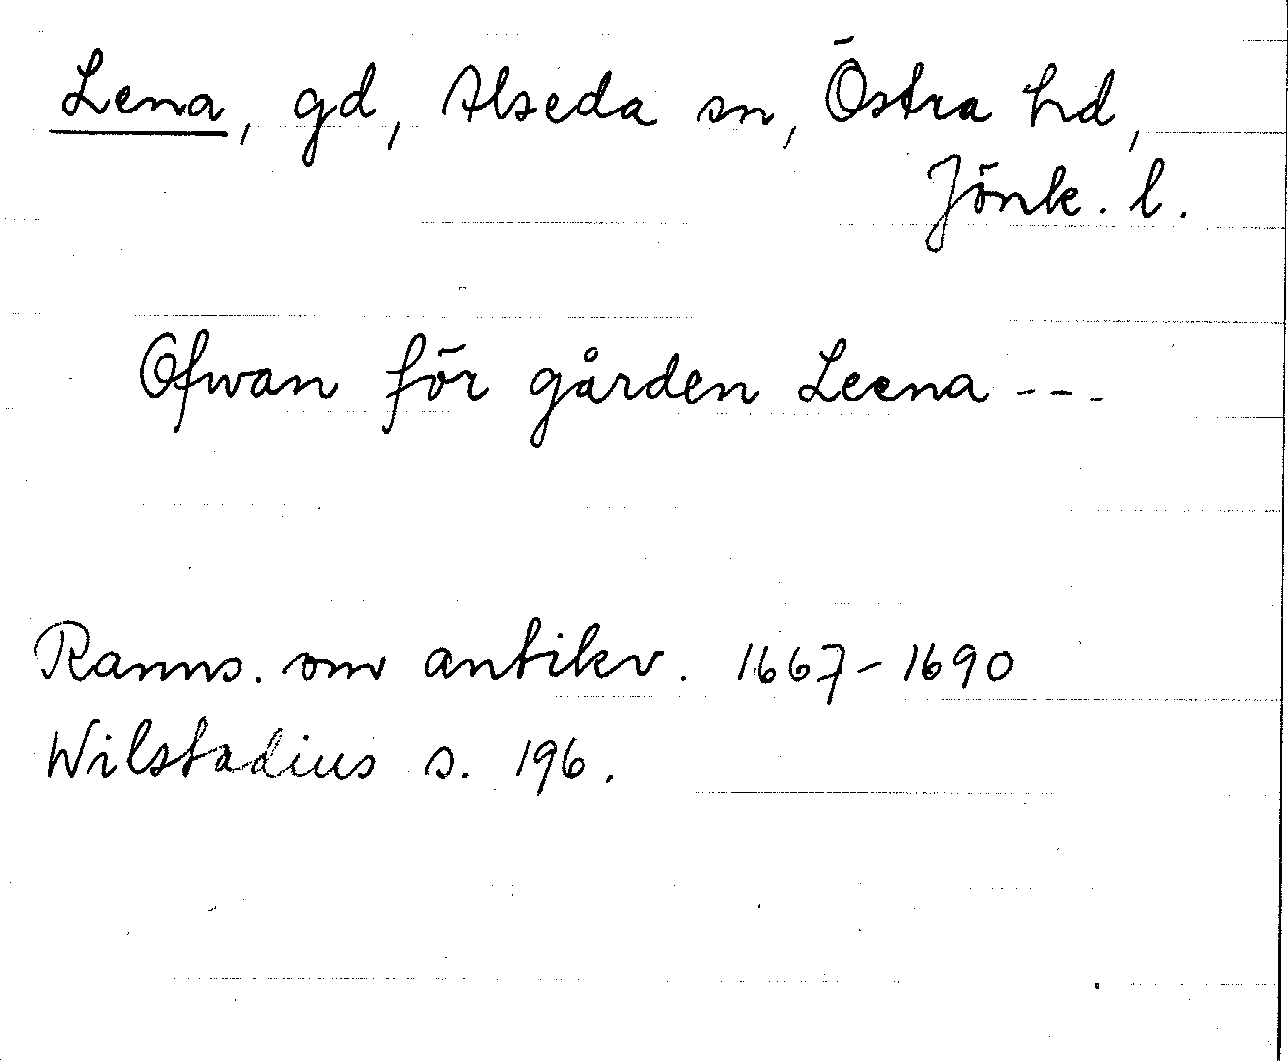 Lena, gd, Alseda sn, Östra hd,
Jönk. l.
Ofwan för gården Leena ---
Ranns. om antikv. 1667-1690
Wilstadius s. 196.